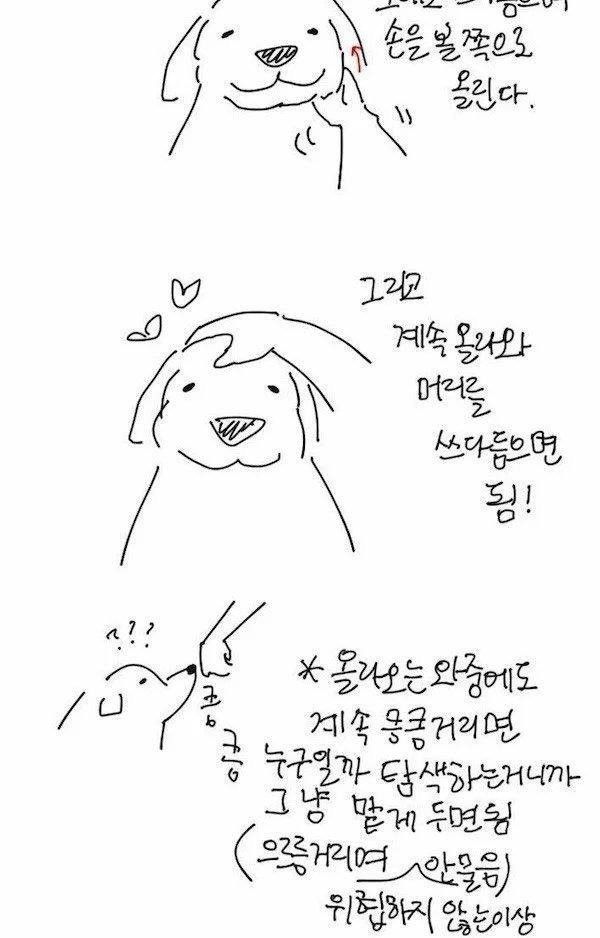 손을 볼쪽으로
올린다.
그리고
계속 올라와
머리를
쓰다듬으면
됨!
~???
킁
킁
* 올라오는 와중에도
계속 킁킁거리면
누구일까 탐색하는거니까
그냥 맡게 두면됨
(으르릉거리며 안물음)
위협하지 않는이상